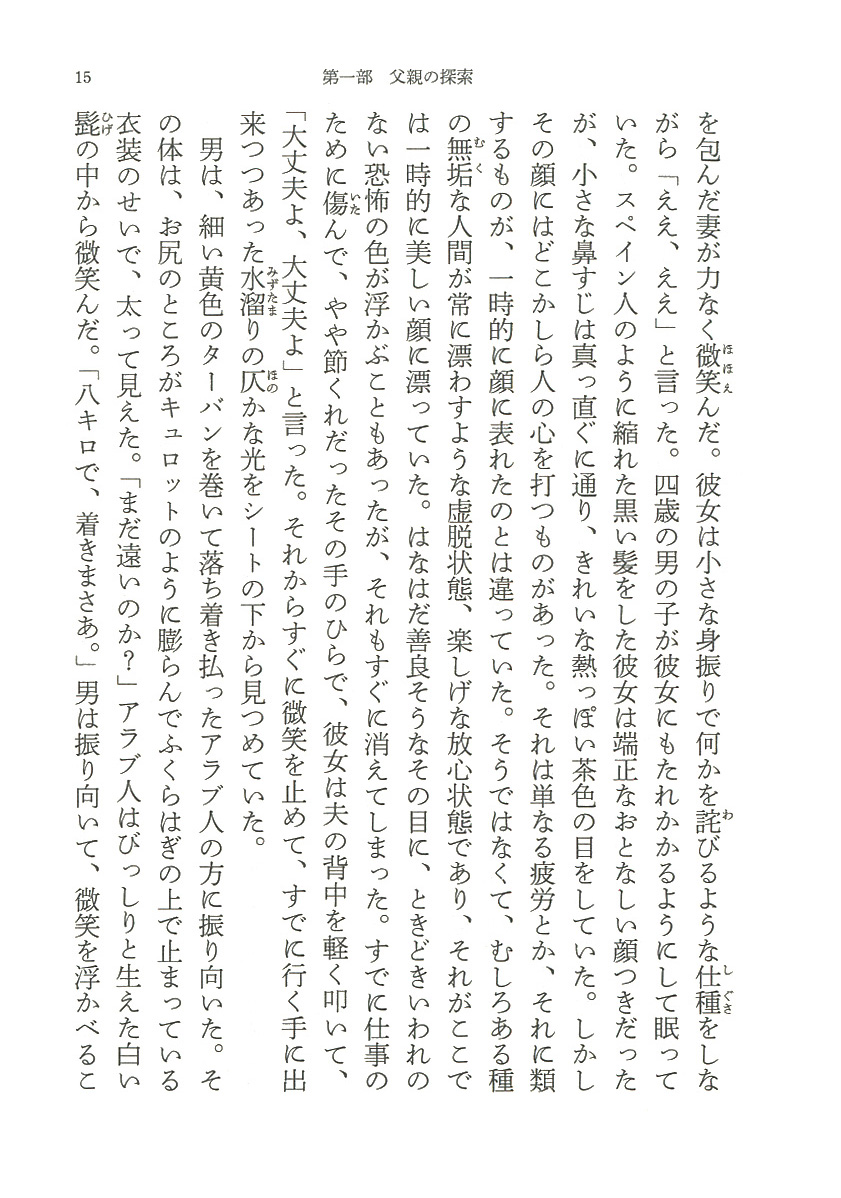 15
第一部　父親の探索
を包んだ妻が力なく微笑んだ。彼女は小さな身振りで何かを詫びるような仕種をしな
がら「ええ、ええ」と言った。四歳の男の子が彼女にもたれかかるようにして眠って
いた。スペイン人のように縮れた黒い髪をした彼女は端正なおとなしい顔つきだった
が、小さな鼻すじは真っ直ぐに通り、きれいな熱っぽい茶色の目をしていた。しかし
その顔にはどこかしら人の心を打つものがあった。それは単なる疲労とか、それに類
するものが、一時的に顔に表れたのとは違っていた。そうではなくて、むしろある種
の無垢な人間が常に漂わすような虚脱状態、楽しげな放心状態であり、それがここで
は一時的に美しい顔に漂っていた。はなはだ善良そうなその目に、ときどきいわれの
ない恐怖の色が浮かぶこともあったが、それもすぐに消えてしまった。すでに仕事の
ために傷んで、やや節くれだったその手のひらで、彼女は夫の背中を軽く叩いて、
「大丈夫よ、大丈夫よ」と言った。それからすぐに微笑を止めて、すでに行く手に出
来つつあった水溜りの仄かな光をシートの下から見つめていた。
男は、細い黄色のターバンを巻いて落ち着き払ったアラブ人の方に振り向いた。そ
の体は、お尻のところがキュロットのように膨らんでふくらはぎの上で止まっている
衣装のせいで、太って見えた。「まだ遠いのか？」アラブ人はびっしりと生えた白い
髭の中から微笑んだ。「八キロで、着きまさあ。」男は振り向いて、微笑を浮かべるこ